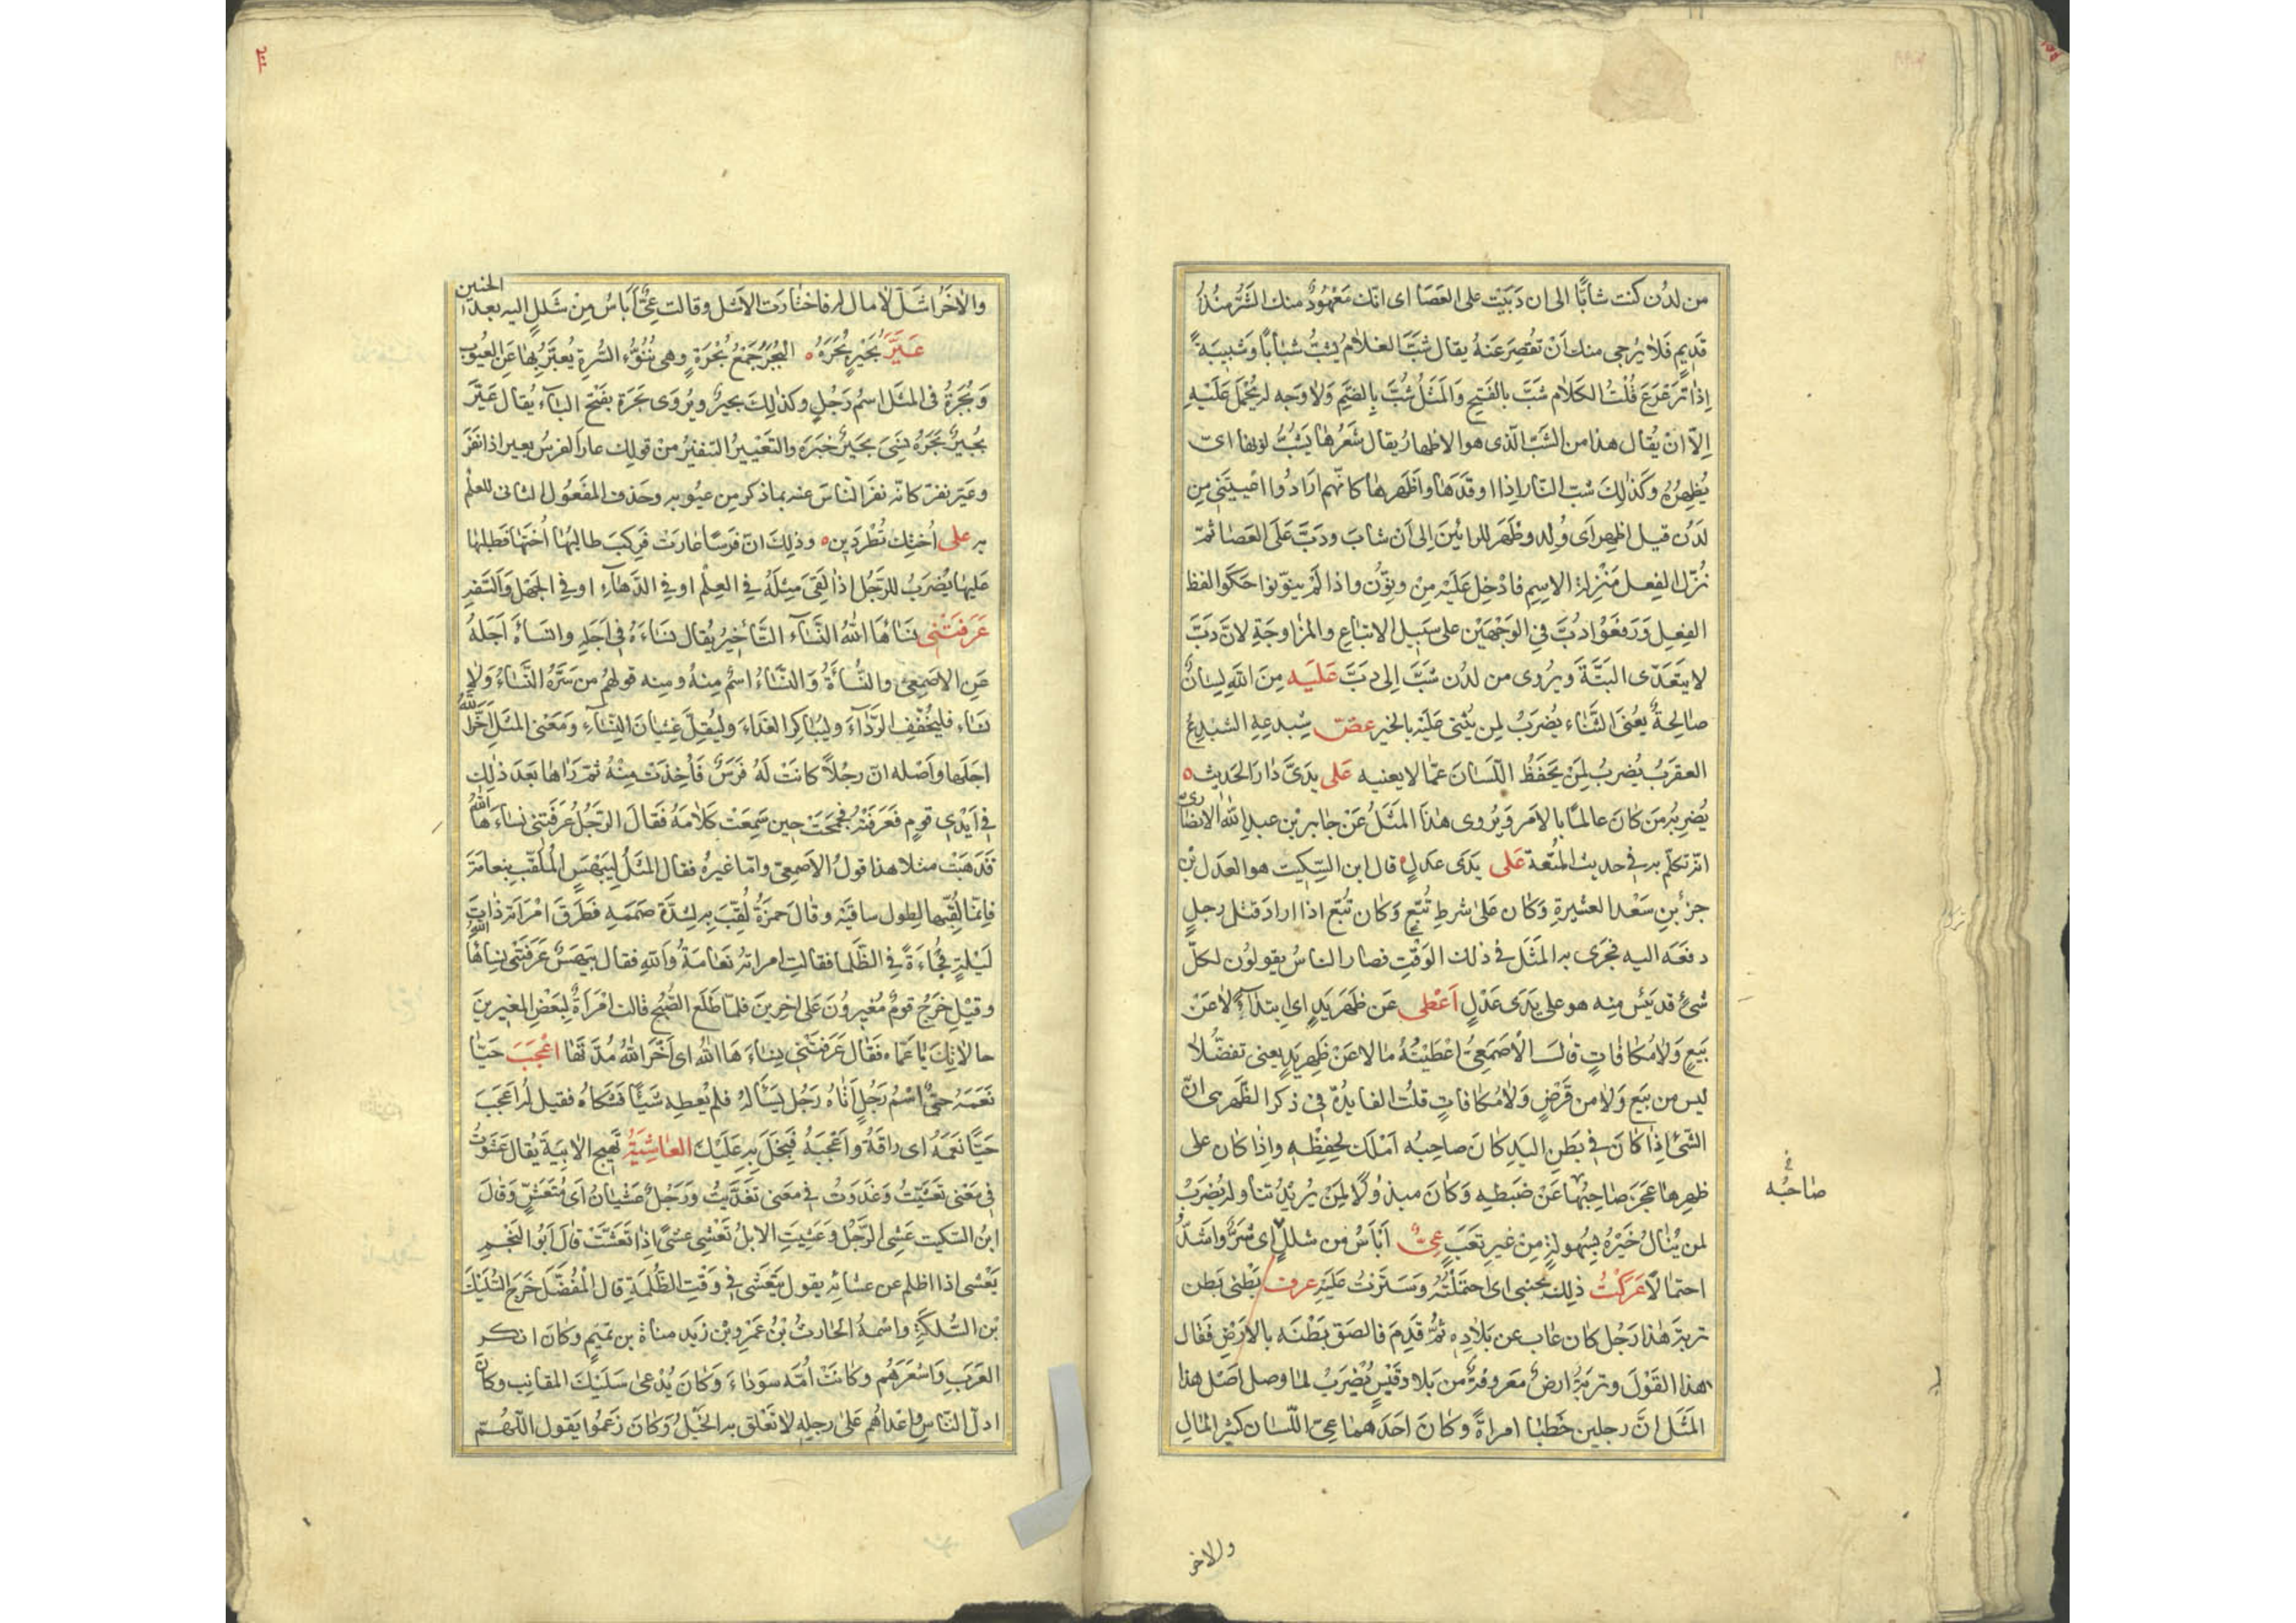 من لدن كنت شابًّا الى ان دَبَبْتَ على العَصَا اى انّك مَعْهُودٌ منك الشَّرُّ مُنْذُ
قَدِيمٍ فَلا يُرجى منك اَنْ تُقصِرَ عَنهُ يقال شَبَّ الغلامُ يَشِبُّ شَبابًا وَشَبِيبَةً
اِذا تَرَعْرَعَ قُلْتُ الكَلام شَبَّ بالفَتحِ وَالمَثَلُ شُبَّ بِالضَمِّ وَلا وَجه له يُحْمَلُ عَلَيْهِ
اِلاّ انْ يُقال هذا من الشَبِّ الّذى هو الاظهارُ يقال شَعْرُها يَشُبُّ لونها اى
يُظهِرُهُ وَكَذٰلِكَ شبّ النّار اِذا اوقَدَها وَاَظْهَرها كانّهم ارَادُوا اعْيَيْتَنِى مِن
لَدُن قيل اظهِرَ اَى وُلِد وظَهَرَ للرائِينَ اِلى اَن شابَ ودَبَّ عَلَى العَصَا ثمّ
نُزّلَ الفِعل مَنْزِلة الاِسمِ فادْخِل عَلَيْه مِنْ ونُوِّن واذا لَمْ ينوّنوا حَكَوا لفظ
الفِعلِ وَرَفَعُوا دُبَّ فِى الوَجْهَيْن على سَبِيل الاتباعِ والمُزاوجَةِ لانّ دَبَّ
لا يتَعَدّى البَتَّةَ ويُروى من لدُن شَبَّ اِلى دَبَّ عَلَيه مِنَ اللهِ لِسانٌ
صَالِحةٌ يعْنى الثَّنَاء يُضرَبُ لِمن يُثنى عَلَيْهِ بالخير عضّ شِبدِعِهِ الشِبْدِعُ
العقرَبُ يُضربُ لِمَنْ يَحفَظُ اللّسَانَ عمّا لا يعنيه عَلى يَدَىَّ دَارَ الحَدِيثُ ه
يُضرِبُه مَن كانَ عالِمًا بالاَمر وَيُروى هٰذا المَثَلُ عَنْ جَابِر بْن عبدِ الله الانصَارى
انّه تكلّم به فى حديث المُتعة عَلى يَدَى عَدلٍ ه قال ابن السِّكِيت هو العَدل بْن
جزءِ بنِ سَعْد العشيرةِ وَكان عَلى شرطِ تُبَّعٍ وَكان تُبّع اذا ارادَ قتل رجلٍ
دفَعَه اليه فجَرى به المَثَل فى ذلك الوَقْتِ فصار الناسُ يقولون لكلّ
شىءٍ قد يَئس منه هو على يَدَى عَدْلٍ اَعْطى عَن ظَهرِ يَدٍ اى ابتداءً لا عَنْ
بَيعٍ وَلا مُكافاتٍ قالَ الْاَصمَعِىُّ اَعْطَيْتُهُ مالا عَنْ ظَهرِ يَدٍ يعنى تفضُّلا
ليس من بَيع وَلا من قَرْضٍ وَلا مُكافاتٍ قلتُ الفايدةُ فِى ذكر الظَّهر هى انّ
الشّىءَ اِذا كانَ فى بَطنِ اليَدِ كانَ صاحِبُه اَمْلَك لحِفِظه واِذا كان على
ظهرها عَجَزَ صَاحِبُها عَنْ ضَبطِه وَكانَ مبذُولًا لِمَنْ يُرِيدُ تناوله يُضرَبُ
لمن يُنالُ خَيْرُهُ بِسُهولةٍ مِنْ غيرِ تَعَبٍ عِىٌّ اَبْاَسُ من شللٍ اى شَرٌّ وَاَشَدُّ
احتمالًا عَرَكْتُ ذلِكَ بجنبى اى احتمَلْتُهُ وَسَتَرْتُ عَلَيْهِ عرف بَطنى بَطن
تربة هٰذا رَجُل كان غاب عن بَلادِه ثُمَّ قَدِمَ فالصَق بَطْنَه بالارَضِ فقال
هذا القَوْلَ وتربَةُ ارضٌ مَعروفةٌ من بَلاد قَيْسٍ يُضْرَبُ لما وصل اصَل هذا
المَثَلِ انَّ رجلين خَطبَا امراةً وكانَ احَدَهما عِىّ اللّسان كثير المَالِ
فى
صَاحبُه
والاخر
والاخَرُ اشَلّ لا مال له فاختارَت الاشلّ وقالت عِىٌّ اَبْاَسُ مِنْ شَللٍ اليه بعدَ الخنين
عَيَّرَ بُجَيْرٌ بُجَرَهُ ه البُجَرُ جَمْعُ بُجْرَةٍ وهى نُتُوّءُ السُّرةِ يُعبّرُ بِها عَنِ العيُوب
وَبُجَرةُ فى المَثَل اسمُ رَجُلٍ وكذٰلِكَ بجيرٌ ويُروَى بَجَرة بفَتْح البَاء يُقال عَيَّرَ
بُجَيرٌ بُجَرَهُ نَسِىَ بجَيرٌ خبَرَه والتَعْيِيرُ التّنفيرُ مِنْ قولك عارَ الفرَسُ يعير اذا نَفَرَ
وعَيّر نفرّ كانّه نفرَ النّاسَ عنه بما ذكر مِن عيُوبه وحَذف المَفعُول الثانى للعلْم
به على اُختِك تُطْرَدِين ه وذلِكَ انّ فرَسًا عارَت فَرِكبَ طالِبُها اُختَها فطلبَها
عليها يُضرَبُ للرَجُل اِذا لَقِىَ مِثلَهُ فى العِلْم او فى الدَهاءِ او فى الجَهْلِ وَالسَفهِ
عَرَفتْنى نسَاهَا اللهُ النَّسَاء التَّاخِيرُ يُقال نسَاءَهُ فى اَجَلِهِ وانساهُ اَجَلهُ
عَنِ الاصَمعِىّ والنُّسأةُ وَالنَّسَاءُ اسمٌ مِنهُ ومنِه قولُهُم من سَرَّهُ النَّسَاءُ وَلا
نسَاء فليُخَفِّفِ الرّداءَ وليُباكِرِ الغَداءَ وليُقِلّ غِشيانَ النِّسَاءِ وَمَعْنى المثَل اَخَّرَ اللهُ
اجَلَها وَاَصْله انّ رجُلًا كانَتْ لَهُ فَرَسٌ فَاُخِذَتْ مِنْهُ ثمّ رَاهَا بَعدَ ذٰلِكَ
فى اَيْدِى قومٍ فَعَرفَتْهُ فجمحَتْ حِين سَمِعَتْ كَلامَهُ فَقَالَ الرّجُلُ عَرفَتنى نسَاءَهَا اللهُ
فذهَبَتْ مثلا هذا قولُ الاَصمِعِىّ وامّا غيرُهُ فقال المَثَلُ لِبَيْهَسٍ المُلَقَّبِ بنِعامَة
فاِنمّا لُقِّبَ بها لِطول ساقيَه وقالَ حمزَةُ لُقِّبَ بِه لِشدّة صَمَمِهِ فَطرَقَ امْرَاتَهُ ذاتَ
لَيْلةٍ فُجاءَةً فى الظّلما فقالت امراتُهُ نَعَامَةُ وَاللهِ فقال بَيهَسٌ عَرَفتْنى نساهَا اللهُ
وقيْل خرَجَ قومٌ مُغيرُونَ عَلى اخرِينَ فلمّا طَلَع الصُّبح قالت امْرَاةٌ لِبَعضِ المغيرينَ
حالاتِكَ يا عمّاه فَقال عَرَفتْنِى نساءَ هَا اللهُ اى اَخَّرَ اللهُ مُدَّتَها اعْجَبَ حَيّا
نَعَمَهُ حَىٌّ اسْمُ رَجُلٍ اَتاهُ رَجُل يَسْاَلهُ فلم يُعطِه شَيْئًا فَشكاهُ فقيل له اَعجَبَ
حَيًّا نَعَمَهُ اى راقَهُ وَاَعْجَبَهُ فَبَخَلَ بِه عَلَيْكَ العَاشِيَةُ تهيج الابِيَةَ يُقال عَشَوتُ
فى مَعْنى تَعَشَّيْتُ وغَدَوتُ فى مَعنى تغدَّيتُ وَرَجُلٌ عَشْيانٌ اَى مُتعَشٍّ وَقالَ
ابنُ السّكيت عَشِى الرَّجُلُ وعَشِيَتِ الابلُ تَعْشِى عشًى اِذا تَعشَّتْ قالَ اَبُو النَجْمِ
يَعْشى اذا اظلم عن عشائه يقول يَتَعَشَّى فى وَقْتِ الظُلمَةِ قال المُفضَّل خَرجَ السُلَيْكَ
بْن السُّلكَةِ واسْمهُ الحَارثُ بْنُ عَمْرِو بْن زَيد مناة بن تَميمٍ وكانَ انكر
العَرَبِ وَاشعَرَهُم وكانَتْ اُمّه سَوْداءَ وَكانَ يُدْعى سَلَيْكَ المقانِب وكانَ
ادلّ النّاسِ واَعْداهُم عَلى رجلِه لا تَعْلق به الخَيْلُ وَكانَ زَعَمُوا يقول اللّهُمّ